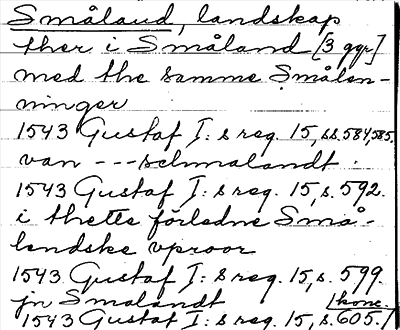 Småland, landskap
ther i Småland [3 ggr]
med the samme Smålen-
ninger
1543 Gustaf I:s reg. 15, ss. 584, 585.
van --- schmalandt.
1543 Gustaf I:s reg. 15, s. 592.
i thette förledne Små-
lendske vproor
1543 Gustaf I:s reg. 15, s. 599.
jn Smalandt 1 konc.
1543 Gustaf I:s reg. 15, s. 605./